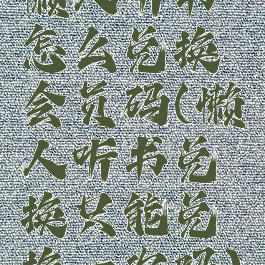 懒人听书
怎么兑换
会员码(懒
人听书兑
换只能兑
换一次吗)